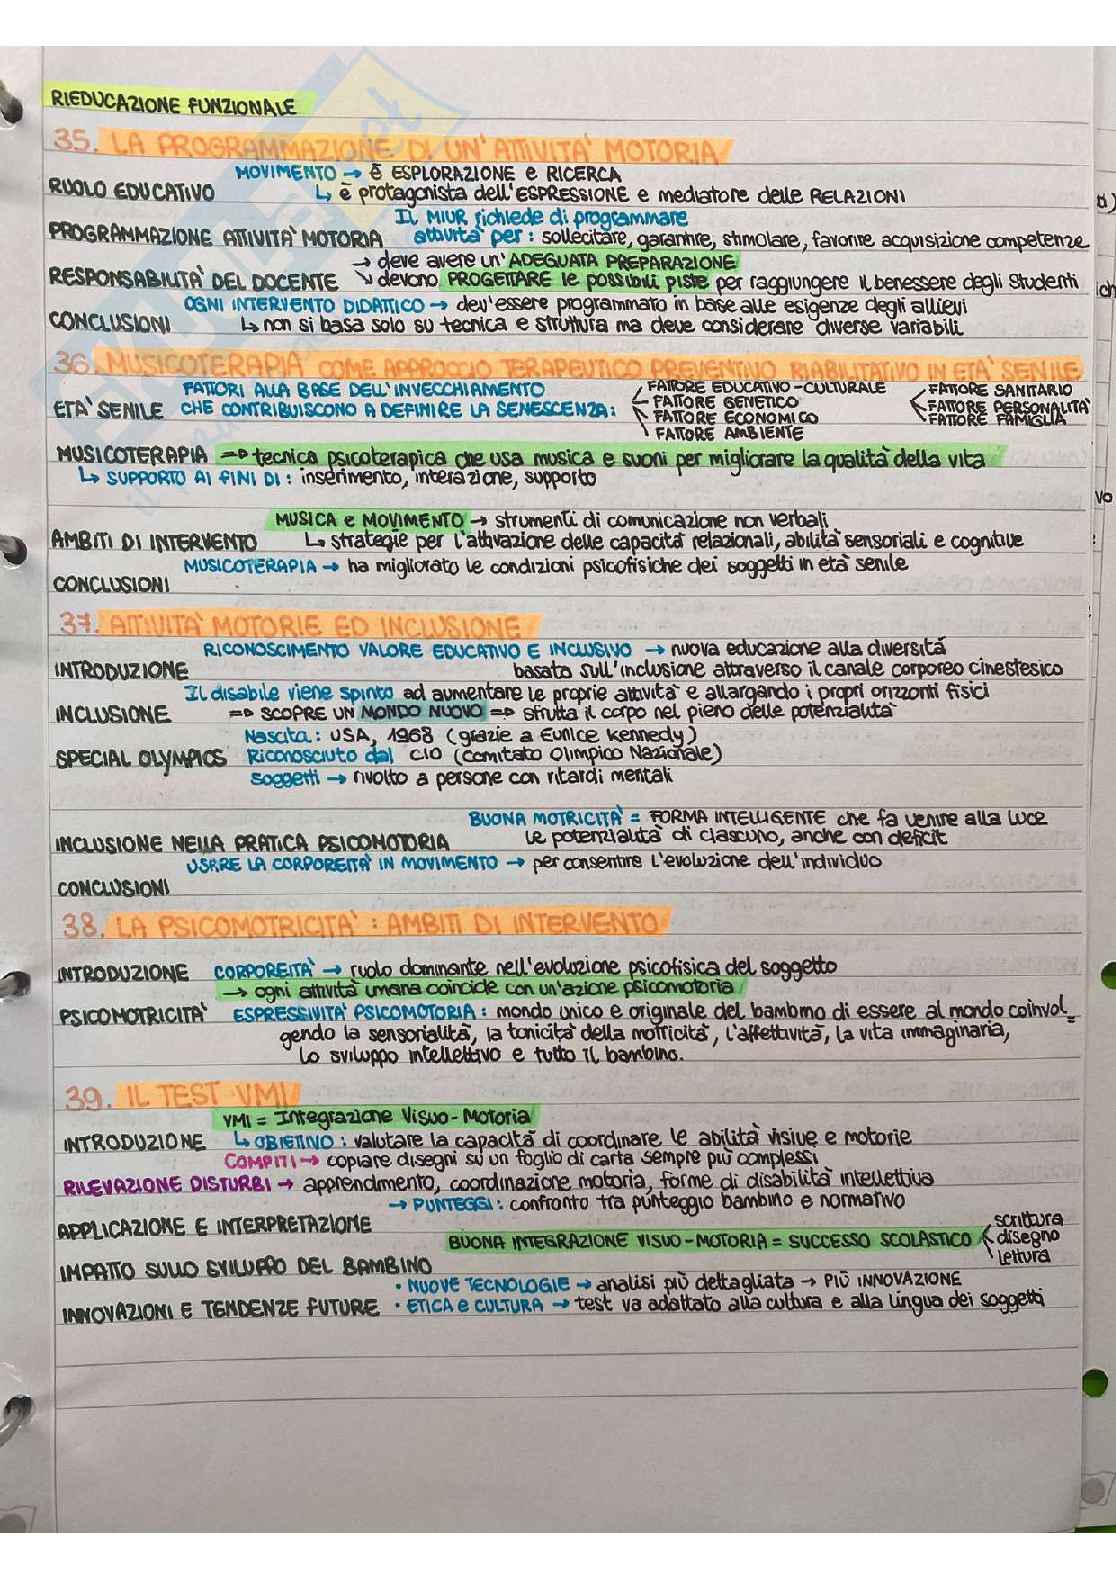 RIEDUCAZIONE FUNZIONALE
35. LA PROGRAMMAZIONE DI UN'ATTIVITA' MOTORIA
MOVIMENTO → È ESPLORAZIONE e RICERCA
RUOLO EDUCATIVO ↳ è protagonista dell'ESPRESSIONE e mediatore delle RELAZIONI
Il MIUR richiede di programmare
PROGRAMMAZIONE ATTIVITA' MOTORIA attività per: sollecitare, garantire, stimolare, favorire acquisizione competenze
→ deve avere un'ADEGUATA PREPARAZIONE
RESPONSABILITA' DEL DOCENTE ↘ devono PROGETTARE le possibili piste per raggiungere il benessere degli studenti
OGNI INTERVENTO DIDATTICO → dev'essere programmato in base alle esigenze degli allievi
CONCLUSIONI ↳ non si basa solo su tecnica e struttura ma deve considerare diverse variabili
36. MUSICOTERAPIA COME APPROCCIO TERAPEUTICO PREVENTIVO RIABILITATIVO IN ETA' SENILE
FATTORI ALLA BASE DELL'INVECCHIAMENTO FATTORE EDUCATIVO-CULTURALE FATTORE SANITARIO
ETA' SENILE CHE CONTRIBUISCONO A DEFINIRE LA SENESCENZA: FATTORE GENETICO FATTORE PERSONALITA'
FATTORE ECONOMICO FATTORE FAMIGLIA
FATTORE AMBIENTE
MUSICOTERAPIA => tecnica psicoterapica che usa musica e suoni per migliorare la qualità della vita
↳ SUPPORTO AI FINI DI: inserimento, interazione, supporto
MUSICA e MOVIMENTO → strumenti di comunicazione non verbali
AMBITI DI INTERVENTO ↳ strategie per l'attivazione delle capacità relazionali, abilità sensoriali e cognitive
MUSICOTERAPIA → ha migliorato le condizioni psicofisiche dei soggetti in età senile
CONCLUSIONI
37. ATTIVITA' MOTORIE ED INCLUSIONE
RICONOSCIMENTO VALORE EDUCATIVO E INCLUSIVO → nuova educazione alla diversità
INTRODUZIONE basata sull'inclusione attraverso il canale corporeo cinestesico
Il disabile viene spinto ad aumentare le proprie attività e allargando i propri orizzonti fisici
INCLUSIONE => SCOPRE UN MONDO NUOVO => sfrutta il corpo nel pieno delle potenzialità
Nascita: USA, 1968 (grazie a Eunice Kennedy)
SPECIAL OLYMPICS Riconosciuto dal CIO (Comitato Olimpico Nazionale)
Soggetti → rivolto a persone con ritardi mentali
BUONA MOTRICITA' = FORMA INTELLIGENTE che fa venire alla luce
INCLUSIONE NELLA PRATICA PSICOMOTORIA le potenzialità di ciascuno, anche con deficit
USARE LA CORPOREITA' IN MOVIMENTO → per consentire l'evoluzione dell'individuo
CONCLUSIONI
38. LA PSICOMOTRICITA': AMBITI DI INTERVENTO
INTRODUZIONE CORPOREITA' → ruolo dominante nell'evoluzione psicofisica del soggetto
→ ogni attività umana coincide con un'azione psicomotoria
PSICOMOTRICITA' ESPRESSIVITÀ PSICOMOTORIA: mondo unico e originale del bambino di essere al mondo coinvol_
gendo la sensorialità, la tonicità della motricità, l'affettività, la vita immaginaria,
lo sviluppo intellettivo e tutto il bambino.
39. IL TEST VMI
VMI = Integrazione Visuo-Motoria
INTRODUZIONE ↳ OBIETTIVO: valutare la capacità di coordinare le abilità visive e motorie
COMPITI → copiare disegni su un foglio di carta sempre più complessi
RILEVAZIONE DISTURBI → apprendimento, coordinazione motoria, forme di disabilità intellettiva
→ PUNTEGGI: confronto tra punteggio bambino e normativo
APPLICAZIONE E INTERPRETAZIONE scrittura
BUONA INTEGRAZIONE VISUO-MOTORIA = SUCCESSO SCOLASTICO disegno
IMPATTO SULLO SVILUPPO DEL BAMBINO lettura
• NUOVE TECNOLOGIE → analisi più dettagliata → PIÙ INNOVAZIONE
INNOVAZIONI E TENDENZE FUTURE • ETICA e CULTURA → test va adattato alla cultura e alla lingua dei soggetti